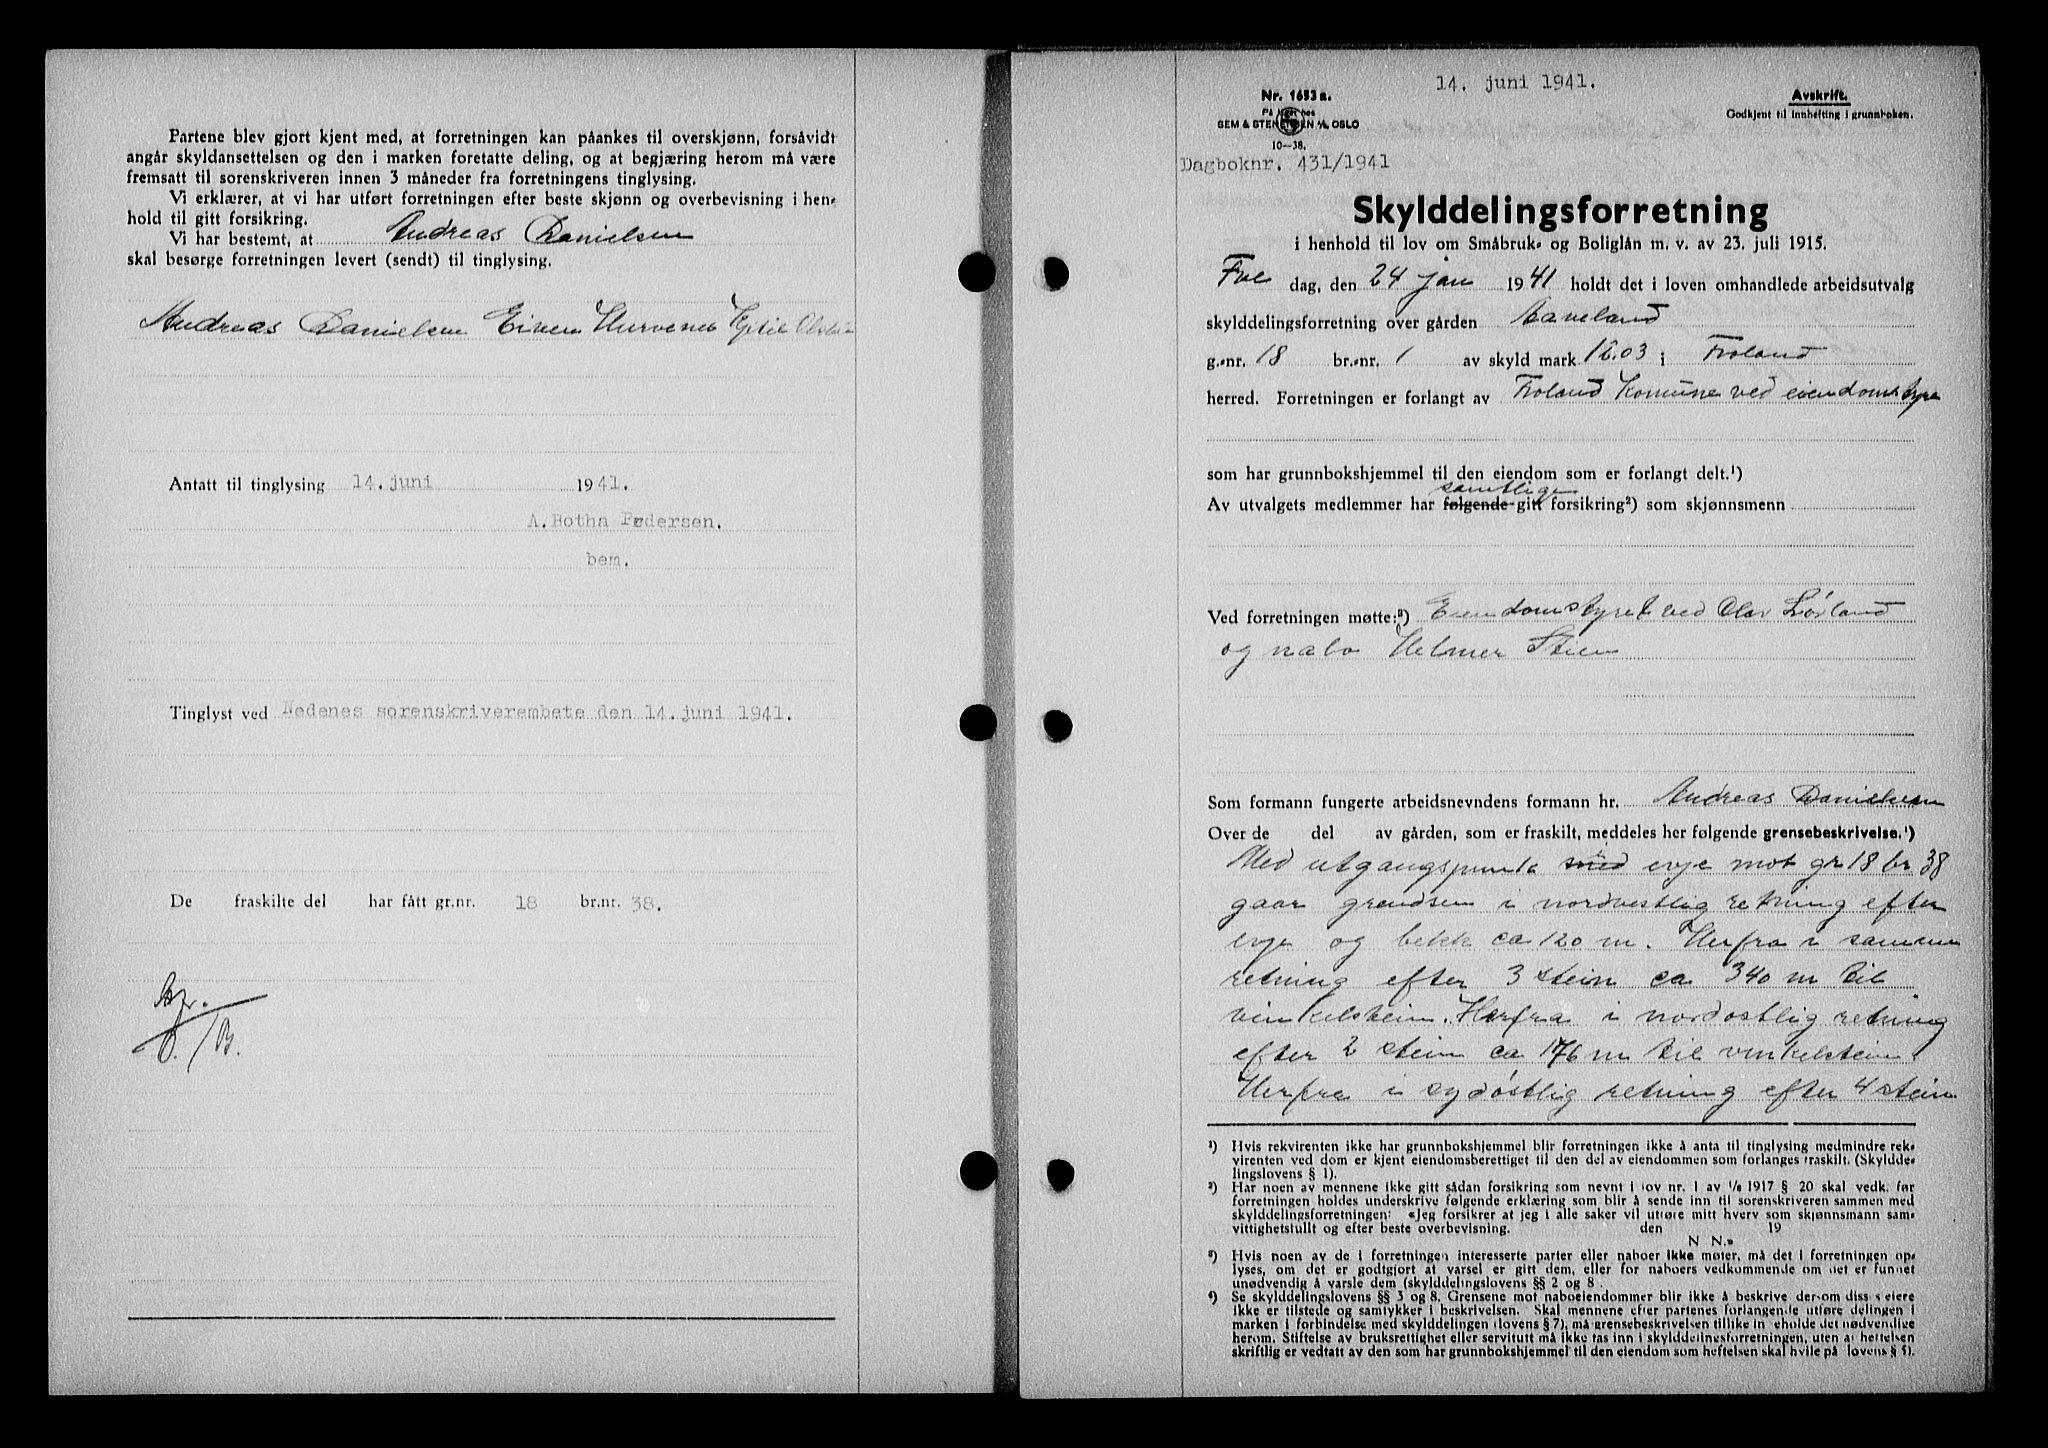 Partene blev gjort kjent med, at forretningen kan påankes til overskjønn, forsåvidt
angår skyldansettelsen og den i marken foretatte deling, og at begjæring herom må være
fremsatt til sorenskriveren innen 3 måneder fra forretningens tinglysing.
Vi erklærer, at vi har utført forretningen efter beste skjønn og overbevisning i hen-
hold til gitt forsikring.
Vi har bestemt, at Andreas Danielsen
skal besørge forretningen levert (sendt) til tinglysing.
Andreas Danielsen Eivin
Antatt til tinglysing 14. juni 1941.
A. Botha Pedersen.
bem.
Tinglyst ved Nedenes sorenskriverembete den 14. juni 1941.
De fraskilte del har fått gr.nr. 18 br.nr. 38.
/B.
14. juni 1941.
Nr. 1653 a.
På lager hos
SEM & STENERSEN A/S OSLO
10-38.
Avskrift.
Godkjent til innhefting i grunnboken.
Dagboknr. 431/1941
Skylddelingsforretning
i henhold til lov om Småbruk- og Boliglån m. v. av 23. juli 1915.
Fre dag, den 24 jan 1941 holdt det i loven omhandlede arbeidsutvalg
skylddelingsforretning over gården
g.-nr. 18 br.-nr. 1 av skyld mark 12.03 i Froland
herred. Forretningen er forlangt av Froland Komune ved eiendomstyre
som har grunnbokshjemmel til den eiendom som er forlangt delt.¹)
samtlige
Av utvalgets medlemmer har følgende gitt forsikring²) som skjønnsmenn
Ved forretningen møtte:³) Eiendomstyret ved Olav Lövland
og nabo Helmer Stien
Som formann fungerte arbeidsnevndens formann hr. Andreas Danielsen
Over de del av gården, som er fraskilt, meddeles her følgende grensebeskrivelse.⁴)
Med utgangspunkt med evje mot gr 18 br 38
gaar grendsen i nordvestlig retning efter
evje og bekk ca 120 m. Herfra i samme
retning efter 3 stein ca 340 m til
vinkelstein. Herfra i nordostlig retning
efter 2 stein ca 176 m til vinkelstein.
Herfra i sydöstlig retning efter 4 stein
¹) Hvis rekvirenten ikke har grunnbokshjemmel blir forretningen ikke å anta til tinglysing medmindre rek-
virenten ved dom er kjent eiendomsberettiget til den del av eiendommen som forlanges fraskilt. (Skyldde-
lingslovens § 1).
²) Har noen av mennene ikke gitt sådan forsikring som nevnt i lov nr. 1 av 1/6 1917 § 20 skal vedk. før
forretningen holdes underskrive følgende erklæring som blir å sende inn til sorenskriveren sammen med
skylddelingsforretningen: «Jeg forsikrer at jeg i alle saker vil utføre mitt hverv som skjønnsmann sam-
vittighetsfullt og efter beste overbevisning. den 19
N. N.»
³) Hvis noen av de i forretningen interesserte parter eller naboer ikke møter, må det i forretningen op-
lyses, om det er godtgjort at varsel er gitt dem, eller for naboers vedkommende om det er funnet
unødvendig å varsle dem (skylddelingslovens §§ 2 og 8.
⁴) Se skylddelingslovens §§ 3 og 8. Grensene mot naboeiendommer blir ikke å beskrive dersom disses eiere
ikke er tilstede og samtykker i beskrivelsen. Skal mennene efter partenes forlangende utføre delingen i
marken i forbindelse med skylddelingen (lovens § 7), må grensebeskrivelsen tillike inneholde det nødvendige
herom. Stiftelse av bruksrettighet eller servitutt må ikke tas inn i skylddelingsforretningen, uten at heftelsen
skriftlig er vedtatt av den som har grunnbokshjemmel til den eiendom som heftelsen skal hvile på (lovens § 5).